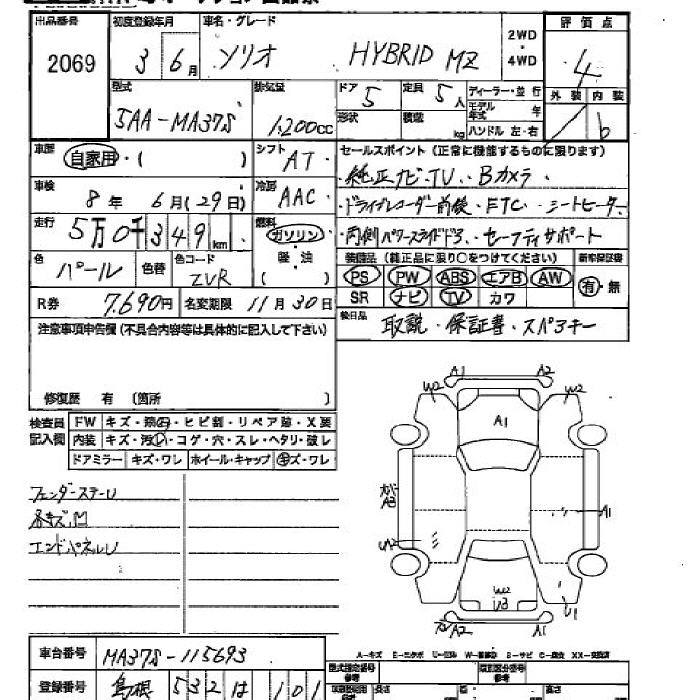 出品番号 初度登録年月 車名・グレード 2WD 評価点
2069 3 6月 ソリオ HYBRID MZ ・4WD 4
型式 排気量 ドア 5 定員 5人 ディーラー・並行 外装 内装
5AA-MA37S 1,200cc 形状 積載 kg モデル年式 年 b
ハンドル 左・右
車歴 自家用・( ) シフト AT・ セールスポイント(正常に機能するものに限ります)
車検 8年 6月(29日) 冷房 AAC ・純正ナビ・TV・Bカメラ・
走行 5万0千349km 燃料 ガソリン・軽・油 ・ドライブレコーダー前後・ETC・シートヒーター
・両側パワースライドドア・セーフティサポート
色 パール 色替 色コード ZVR ( ) 装備品(純正品に限り○をつけてください) 新車保証書
PS PW ABS エアB AW 有・無
R券 7,690円 名変期限 11月30日 SR ナビ TV カワ
注意事項申告欄(不具合内容等は具体的に記入して下さい) 後日品 取説・保証書・スペアキー
修復歴 有 (箇所 )
検査員記入欄 FW キズ・飛石・ヒビ割・リペア跡・X要
内装 キズ・汚レ・コゲ・穴・スレ・ヘタリ・破レ
ドアミラー キズ・ワレ ホイール・キャップ キズ・ワレ
W2 A1 A2 W2
A1
A3 A1
UA2
W2
U3 U1
A2 A1
フェンダーステーU
各キズ、凹
エンドパネルU
A-キズ E-エクボ U-凹み W-補修跡 S-サビ C-腐食 XX-交換済
車台番号 MA37S-115693 型式指定番号 類別区分番号
登録番号 島根 532 は 101 長さ 幅 高さ